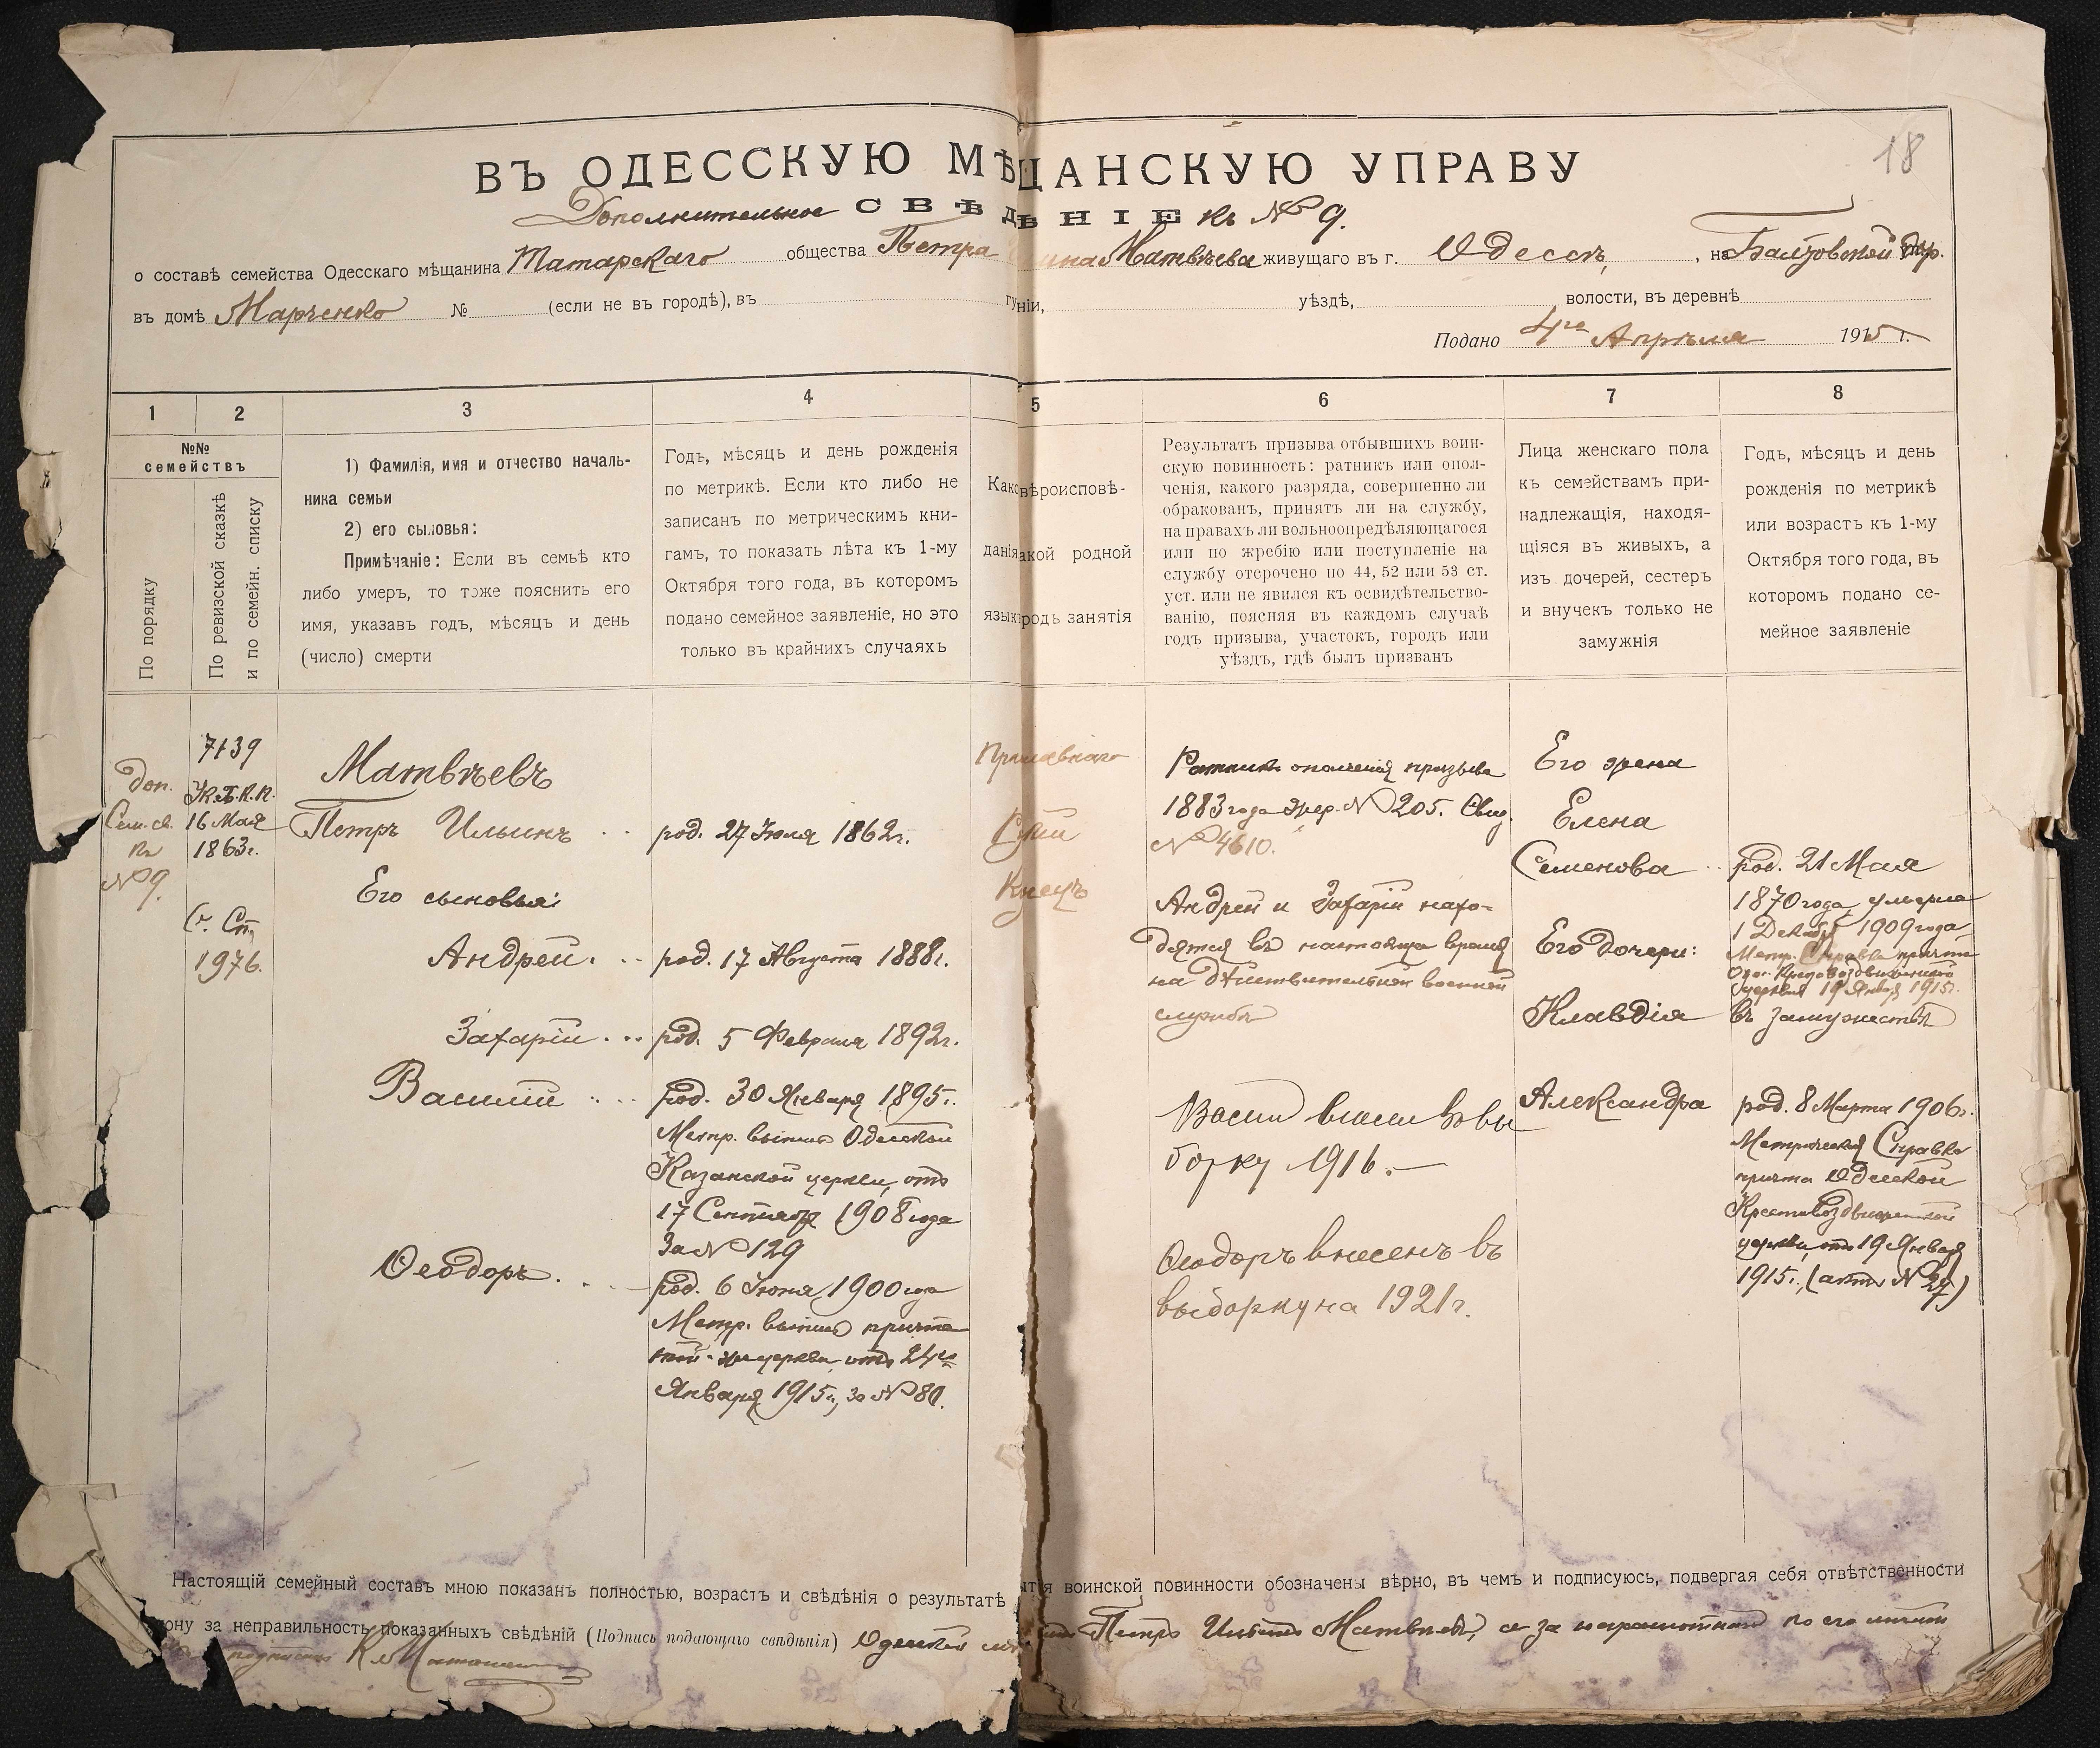 18
ВЪ ОДЕССКУЮ МѢЩАНСКУЮ УПРАВУ
Дополнительное СВѢДѢНІЕ къ № 9.
о составѣ семейства Одесскаго мѣщанина Татарскаго общества Петра Матвѣева живущаго въ г. Одессѣ, на Балтовской дор.
въ домѣ Марченко № (если не въ городѣ), въ гу ніи, уѣздѣ, волости, въ деревнѣ
Подано 4го Апрѣля 1915 г.
1 2 3 4 5 6 7 8
№№
семействъ
По порядку
По ревизской сказкѣ
и по семейн. списку
1) Фамилія, имя и отчество началь-
ника семьи
2) его сыновья:
Примѣчаніе: Если въ семьѣ кто
либо умеръ, то тоже пояснить его
имя, указавъ годъ, мѣсяцъ и день
(число) смерти
Годъ, мѣсяцъ и день рожденія
по метрикѣ. Если кто либо не
записанъ по метрическимъ кни-
гамъ, то показать лѣта къ 1-му
Октября того года, въ которомъ
подано семейное заявленіе, но это
только въ крайнихъ случаяхъ
Како вѣроисповѣ-
данія акой родной
язык родъ занятія
Результатъ призыва отбывшихъ воин-
скую повинность: ратникъ или опол-
ченія, какого разряда, совершенно ли
обракованъ, принятъ ли на службу,
на правахъ ли вольноопредѣляющагося
или по жребію или поступленіе на
службу отсрочено по 44, 52 или 53 ст.
уст. или не явился къ освидѣтельство-
ванію, поясняя въ каждомъ случаѣ
годъ призыва, участокъ, городъ или
уѣздъ, гдѣ былъ призванъ
Лица женскаго пола
къ семействамъ при-
надлежащія, находя-
щіяся въ живыхъ, а
изъ дочерей, сестеръ
и внучекъ только не
замужнія
Годъ, мѣсяцъ и день
рожденія по метрикѣ
или возрастъ къ 1-му
Октября того года, въ
которомъ подано се-
мейное заявленіе
Доп.
Сем. св.
къ
№ 9.
7139
16 Мая
1863 г.
1976.
Матвѣевъ
Петръ Ильинъ
Его сыновья:
Андрей
Захарій
Василій
Ѳеодоръ
род. 27 Іюля 1862 г.
род. 17 Августа 1888 г.
род. 5 Февраля 1892 г.
род. 30 Января 1895 г.
Метр. выпись Одесской
Казанской церкви, отъ
17 Сентября 1908 года
За № 129
род. 6 Іюня 1900 года
Метр. выпись причта
той-же церкви отъ 24го
Января 1915 г., за № 80.
Ратникъ ополченія призыва
1883 года жер. № 205. Свид.
№ 4610.
Андрей и Захарій нахо-
дятся въ настояще время
на дѣйствительной военной
службѣ
Васил внесен въ вы
борку 1916.
Ѳеодоръ внесенъ въ
выборку на 1921 г.
Его жена
Елена
Семенова
Его дочери:
Клавдія
Александра
род. 21 Мая
1870 года умерла
1 Декабр 1909 года
Метр. Справка причта
Одес. Крестовоздвиженской
церкви 19 Январ 1915 г.
въ замужествѣ
род. 8 Марта 1906 г.
Метрическая Справка
причта Одесской
Крестовоздвиженской
церкви отъ 19 Января
1915 г., (актъ № 29)
Настоящій семейный составъ мною показанъ полностью, возрастъ и свѣдѣнія о результатѣ ытія воинской повинности обозначены вѣрно, въ чемъ и подписуюсь, подвергая себя отвѣтственности
ону за неправильность показанныхъ свѣдѣній (Подпись подающаго свѣдѣнія) Одесскій Петръ Ильинъ Матвѣевъ, а за неграмотнаго по его личной